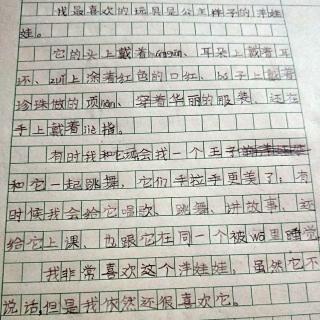 我最喜欢的玩具是公主样子的洋娃
娃。
它的头上戴着huángguàn、耳朵上戴着耳
环、zuǐ上涂着红色的口红、bó子上戴着
珍珠做的项liàn、穿着华丽的服装、还在
手上戴着jiè指。
有时我和它还会找一个王子
和它一起跳舞,它们手拉手更美了;有
时候我会给它唱歌、跳舞、讲故事、还
给它上课、也跟它在同一个被wō里睡觉
我非常喜欢这个洋娃娃,虽然它不
说话,但是我依然还很喜欢它。